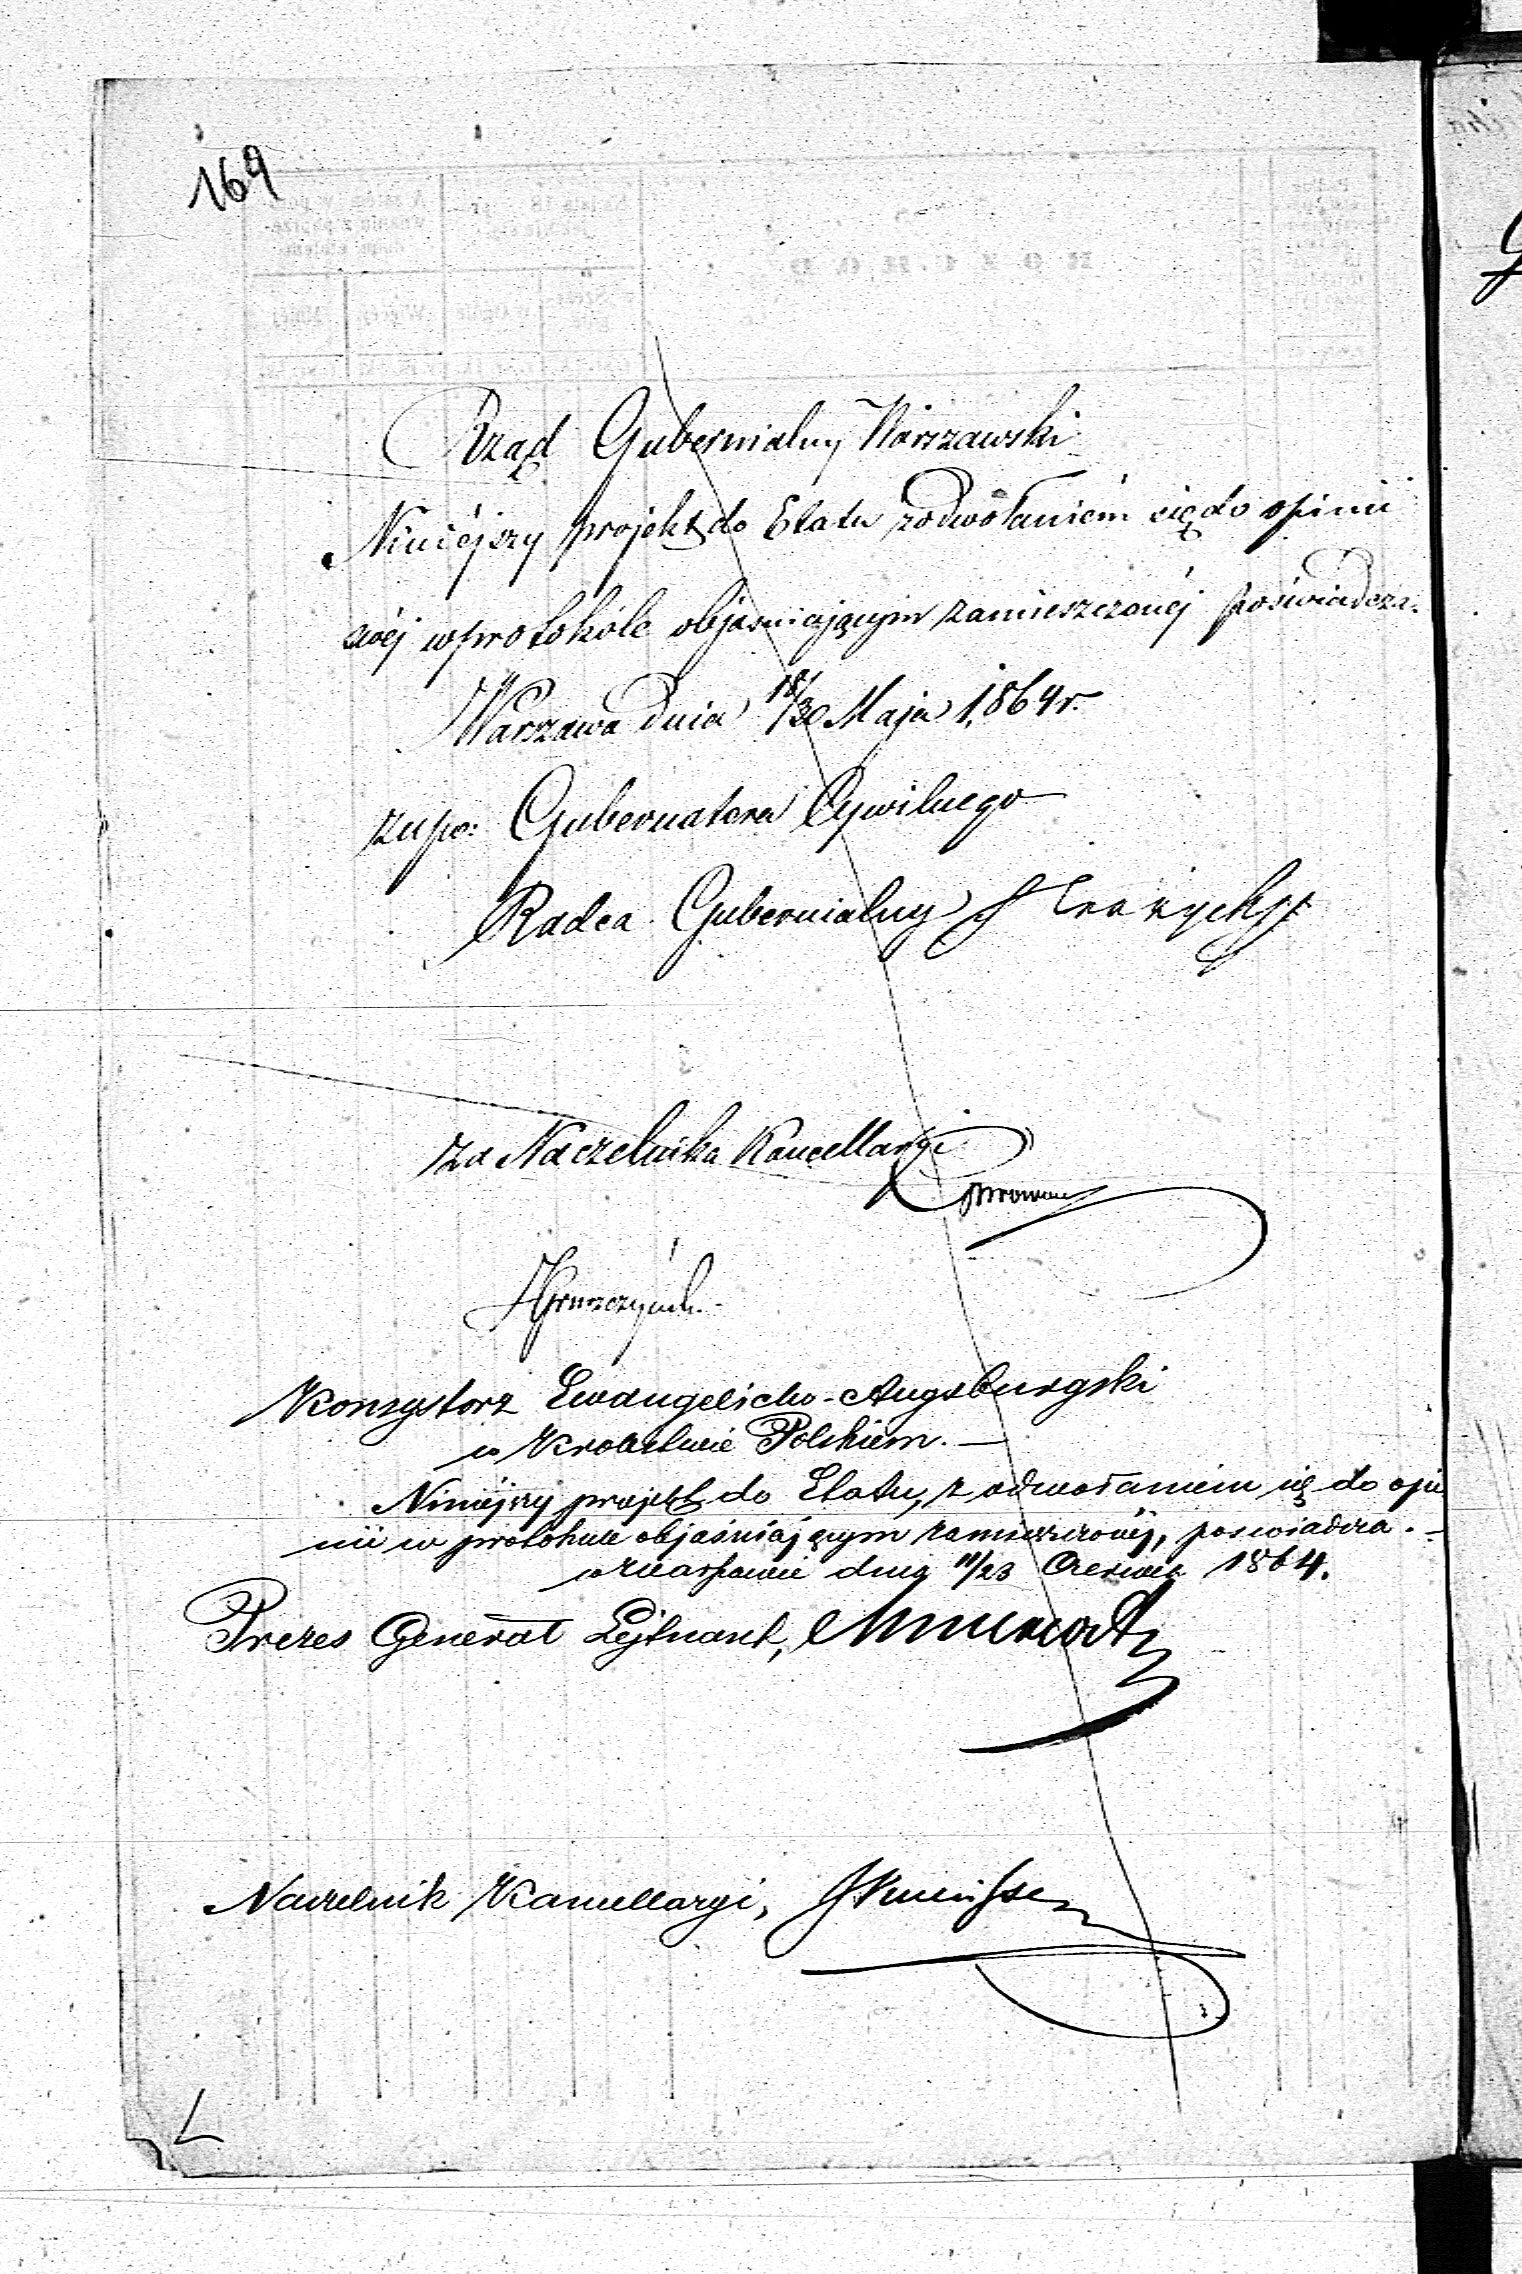 169
Rząd Gubernialny Warszawski
Niniéjszy projekt do Etatu zodwołaniem się do opinii
swéj wprotokóle objaśniającym zamieszczonéj poświadcza.
Warszawa dnia 18/30 Maja 1864 r.
zupo: Gubernatora Cywilnego
Radca Gubernialny
Za Naczelnika Kancellaryi
Konsystorz Ewangelicko-Augsburgski
w Królestwie Polskiem. —
Niniejszy projekt do Etatu, z odwołaniem się do opi
nii w protokule objaśniającym zamieszczonéj, poświadcza. —
w Warszawie dnia 11/23 Czerwca 1864.
Prezes Generał Lejtnant,
Naczelnik Kancellaryi,